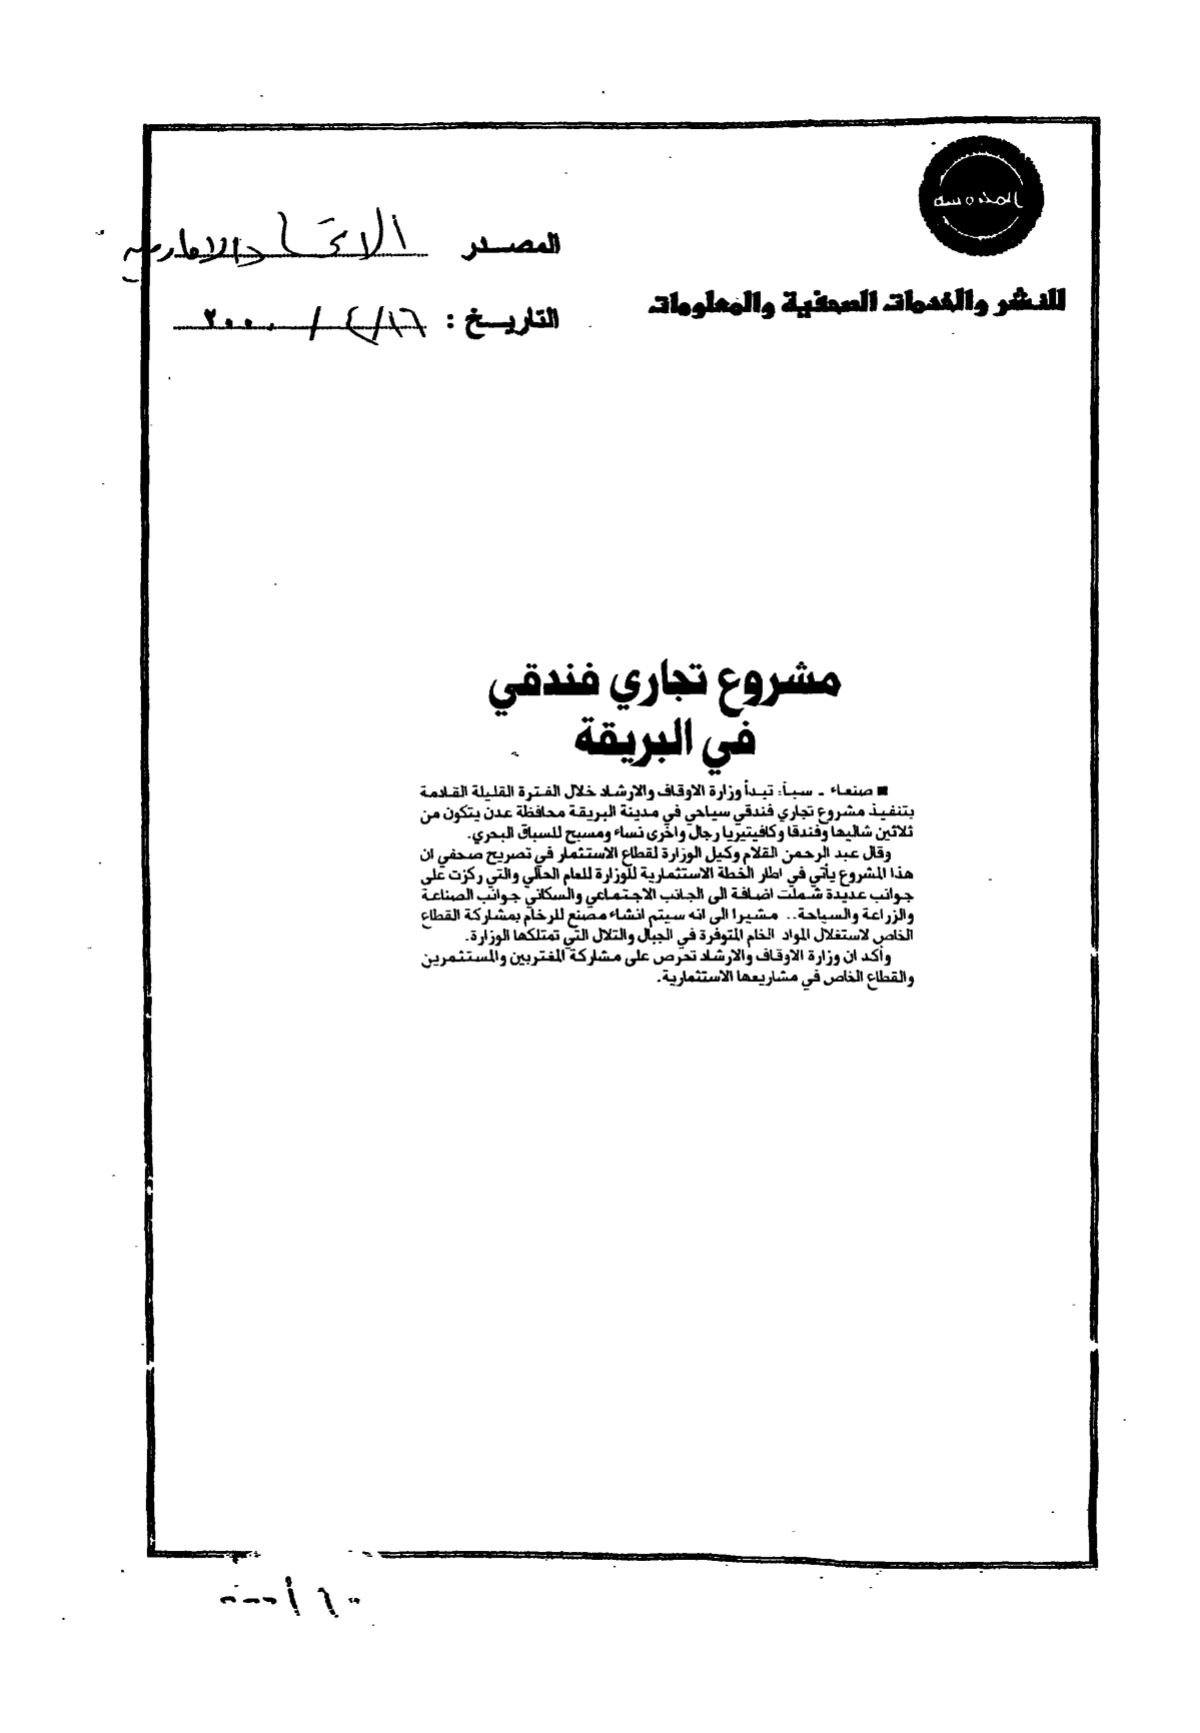 المصدر الاتحاد الاماراتية
للنشر والخدمات الصحفية والمعلومات
التاريخ : ١٦/٤/٢٠٠٠
مشروع تجاري فندقي
في البريقة
■ صنعاء ـ سبأ: تبدأ وزارة الاوقاف والارشاد خلال الفترة القليلة القادمة
بتنفيذ مشروع تجاري فندقي سياحي في مدينة البريقة محافظة عدن يتكون من
ثلاثين شاليها وفندقا وكافيتيريا رجال واخرى نساء ومسبح للسباق البحري.
وقال عبد الرحمن القلام وكيل الوزارة لقطاع الاستثمار في تصريح صحفي ان
هذا المشروع يأتي في اطار الخطة الاستثمارية للوزارة للعام الحالي والتي ركزت على
جوانب عديدة شملت اضافة الى الجانب الاجتماعي والسكاني جوانب الصناعة
والزراعة والسياحة.. مشيرا الى انه سيتم انشاء مصنع للرخام بمشاركة القطاع
الخاص لاستغلال المواد الخام المتوفرة في الجبال والتلال التي تمتلكها الوزارة.
وأكد ان وزارة الاوقاف والارشاد تحرص على مشاركة المغتربين والمستثمرين
والقطاع الخاص في مشاريعها الاستثمارية.